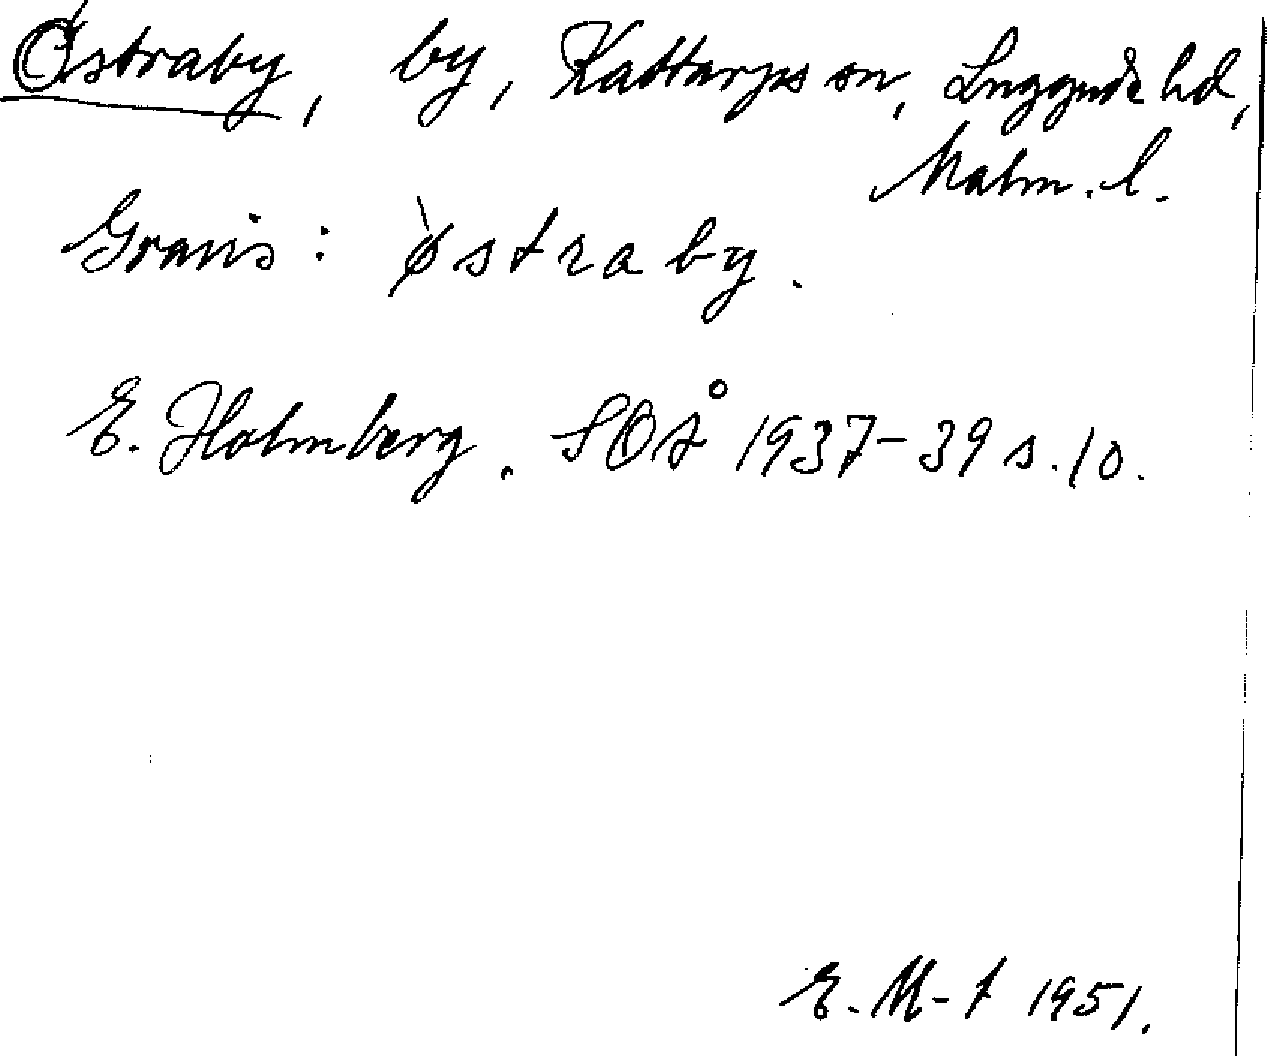 Östraby, by, Kattarps sn, Luggude hd,
Malm. l.
Gravis: ø̀straby.
E. Holmberg. SOÅ 1937-39 s. 10.
E. M-t 1951.